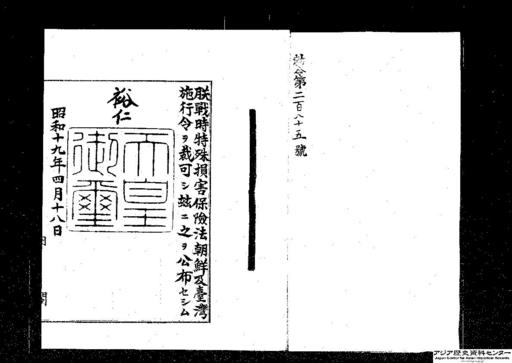 勅令第二百八十五號
朕戰時特殊損害保險法朝鮮及臺灣
施行令ヲ裁可シ玆ニ之ヲ公布セシム
裕仁
天皇
御璽
昭和十九年四月十八日
内閣
アジア歴史資料センター
Japan Center for Asian Historical Records